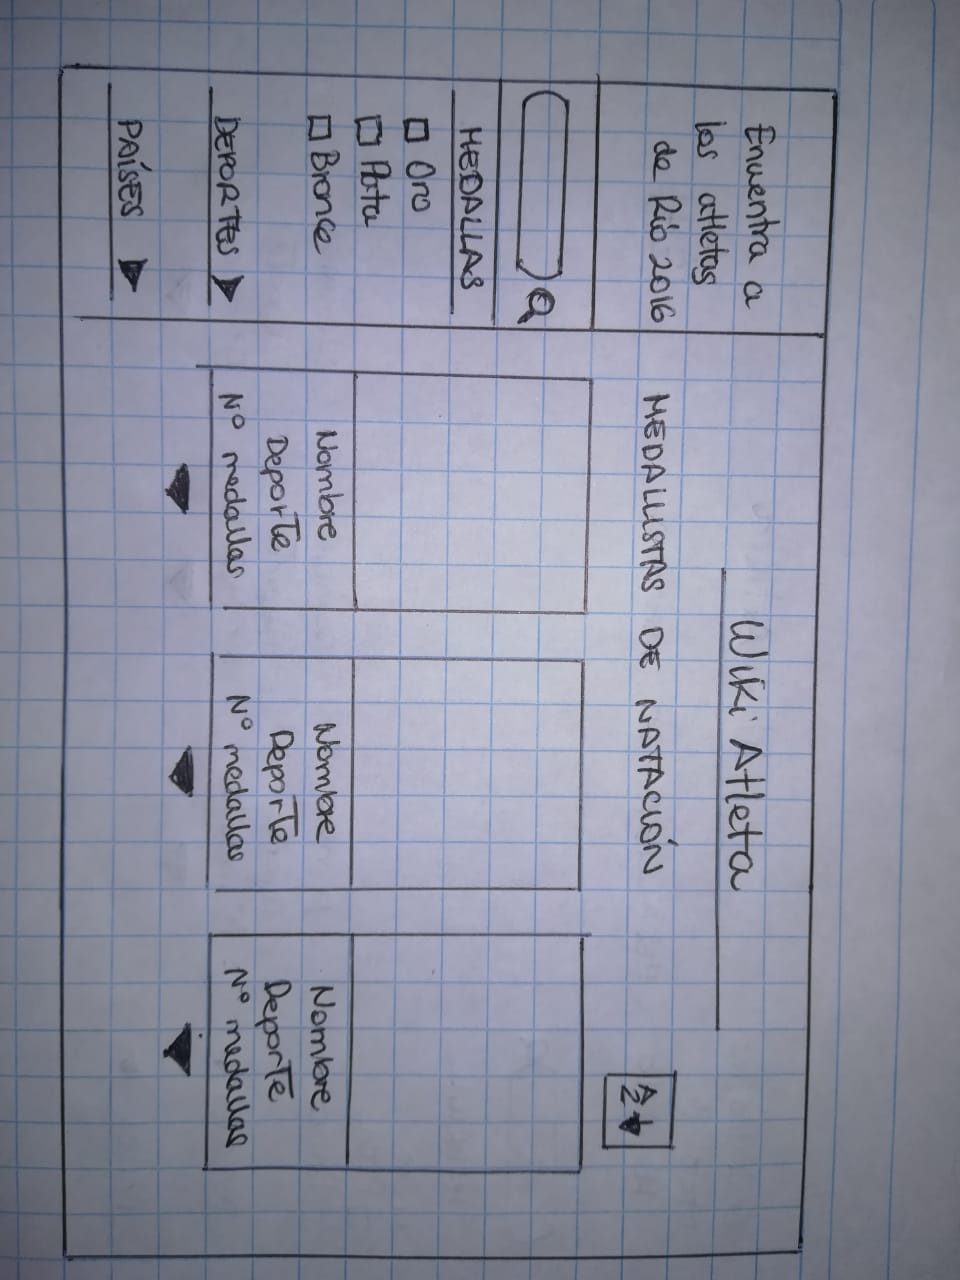 Encuentra a
los atletas
de Río 2016
MEDALLAS
Oro
Plata
Bronce
DEPORTES
PAÍSES
Wiki Atleta
MEDALLISTAS DE NATACIÓN
AZ
Nombre
Deporte
Nº medallas
Nombre
Deporte
Nº medallas
Nombre
Deporte
Nº medallas